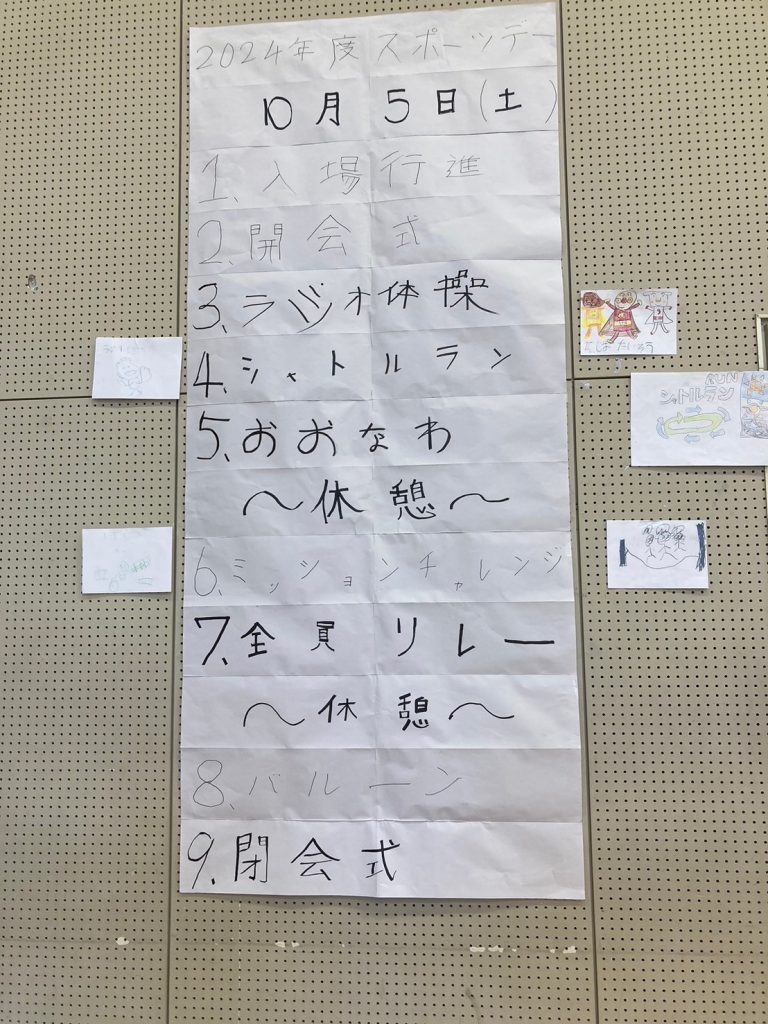 2024年度スポーツデー
10月5日(土)
1.入場行進
2.開会式
3.ラジオ体操
4.シャトルラン
5.おおなわ
〜休憩〜
6.ミッションチャレンジ
7.全員リレー
〜休憩〜
8.バルーン
9.閉会式
RUN
シャトルラン